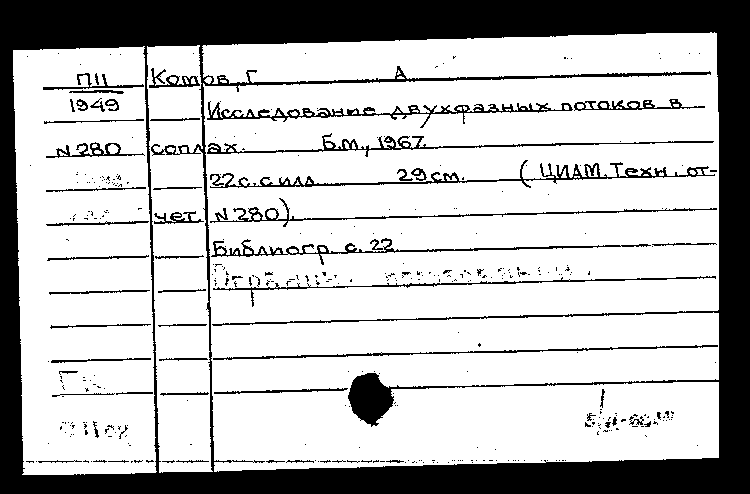 П11 Котов, Г А
1949 Исследование двухфазных потоков в
N 280 соплах. Б.м., 1967.
22 с. с илл. 29 см. (ЦИАМ. Техн. от-
чет N 280).
Библиогр. с. 22
Огранич. пользования.
ГК